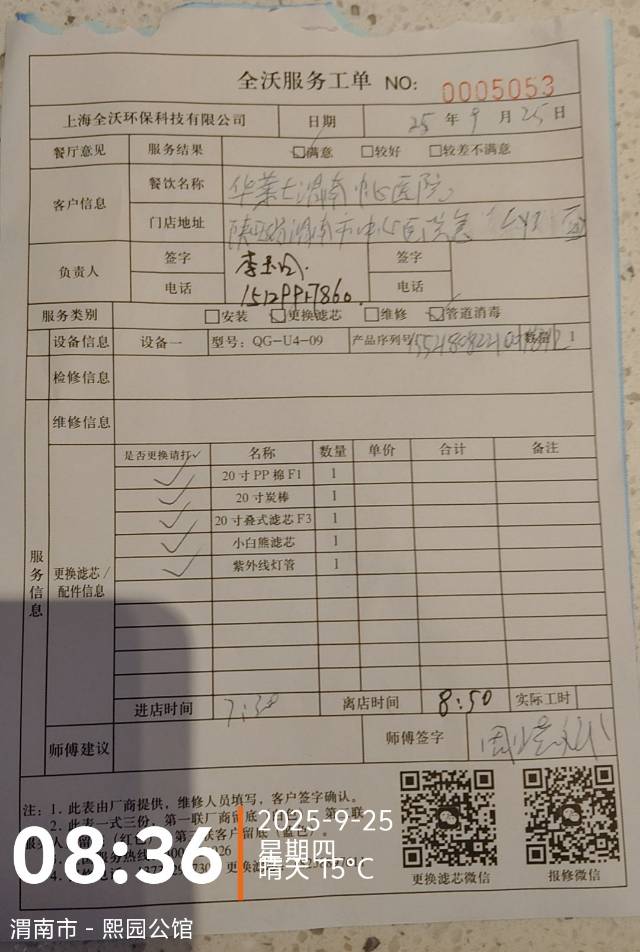 全沃服务工单 NO: 0005053
上海全沃环保科技有限公司 日期 25 年 9 月 25 日
餐厅意见 服务结果 满意 较好 较差不满意
客户信息 餐饮名称 华莱士渭南中心医院
门店地址 陕西省渭南市中心医院
负责人 签字 李 签字
电话 电话
服务类别 安装 更换滤芯 维修 管道消毒
设备信息 设备一 型号: QG-U4-09 产品序列号 数量 1
检修信息
维修信息
服务信息
是否更换请打✓ 名称 数量 单价 合计 备注
✓ 20寸PP棉F1 1
✓ 20寸炭棒 1
✓ 20寸叠式滤芯F3 1
✓ 小白熊滤芯 1
✓ 紫外线灯管 1
更换滤芯/
配件信息
进店时间 7:30 离店时间 8:50 实际工时
师傅建议 师傅签字
注: 1. 此表由厂商提供，维修人员填写，客户签字确认。
2. 此表一式三份，第一联厂商留底
客户留底（蓝色）。
更换滤芯微信 报修微信
08:36
2025-9-25
星期四
晴天 15℃
渭南市 - 熙园公馆